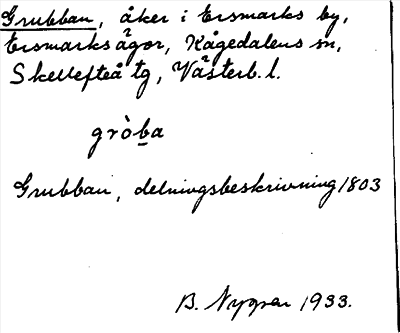 Grubban, åker i Ersmarks by,
Ersmarks ägor, Kågedalens sn,
Skellefteå tg, Västerb. l.
gròba
Grubban, delningsbeskrivning 1803
B. 1933.